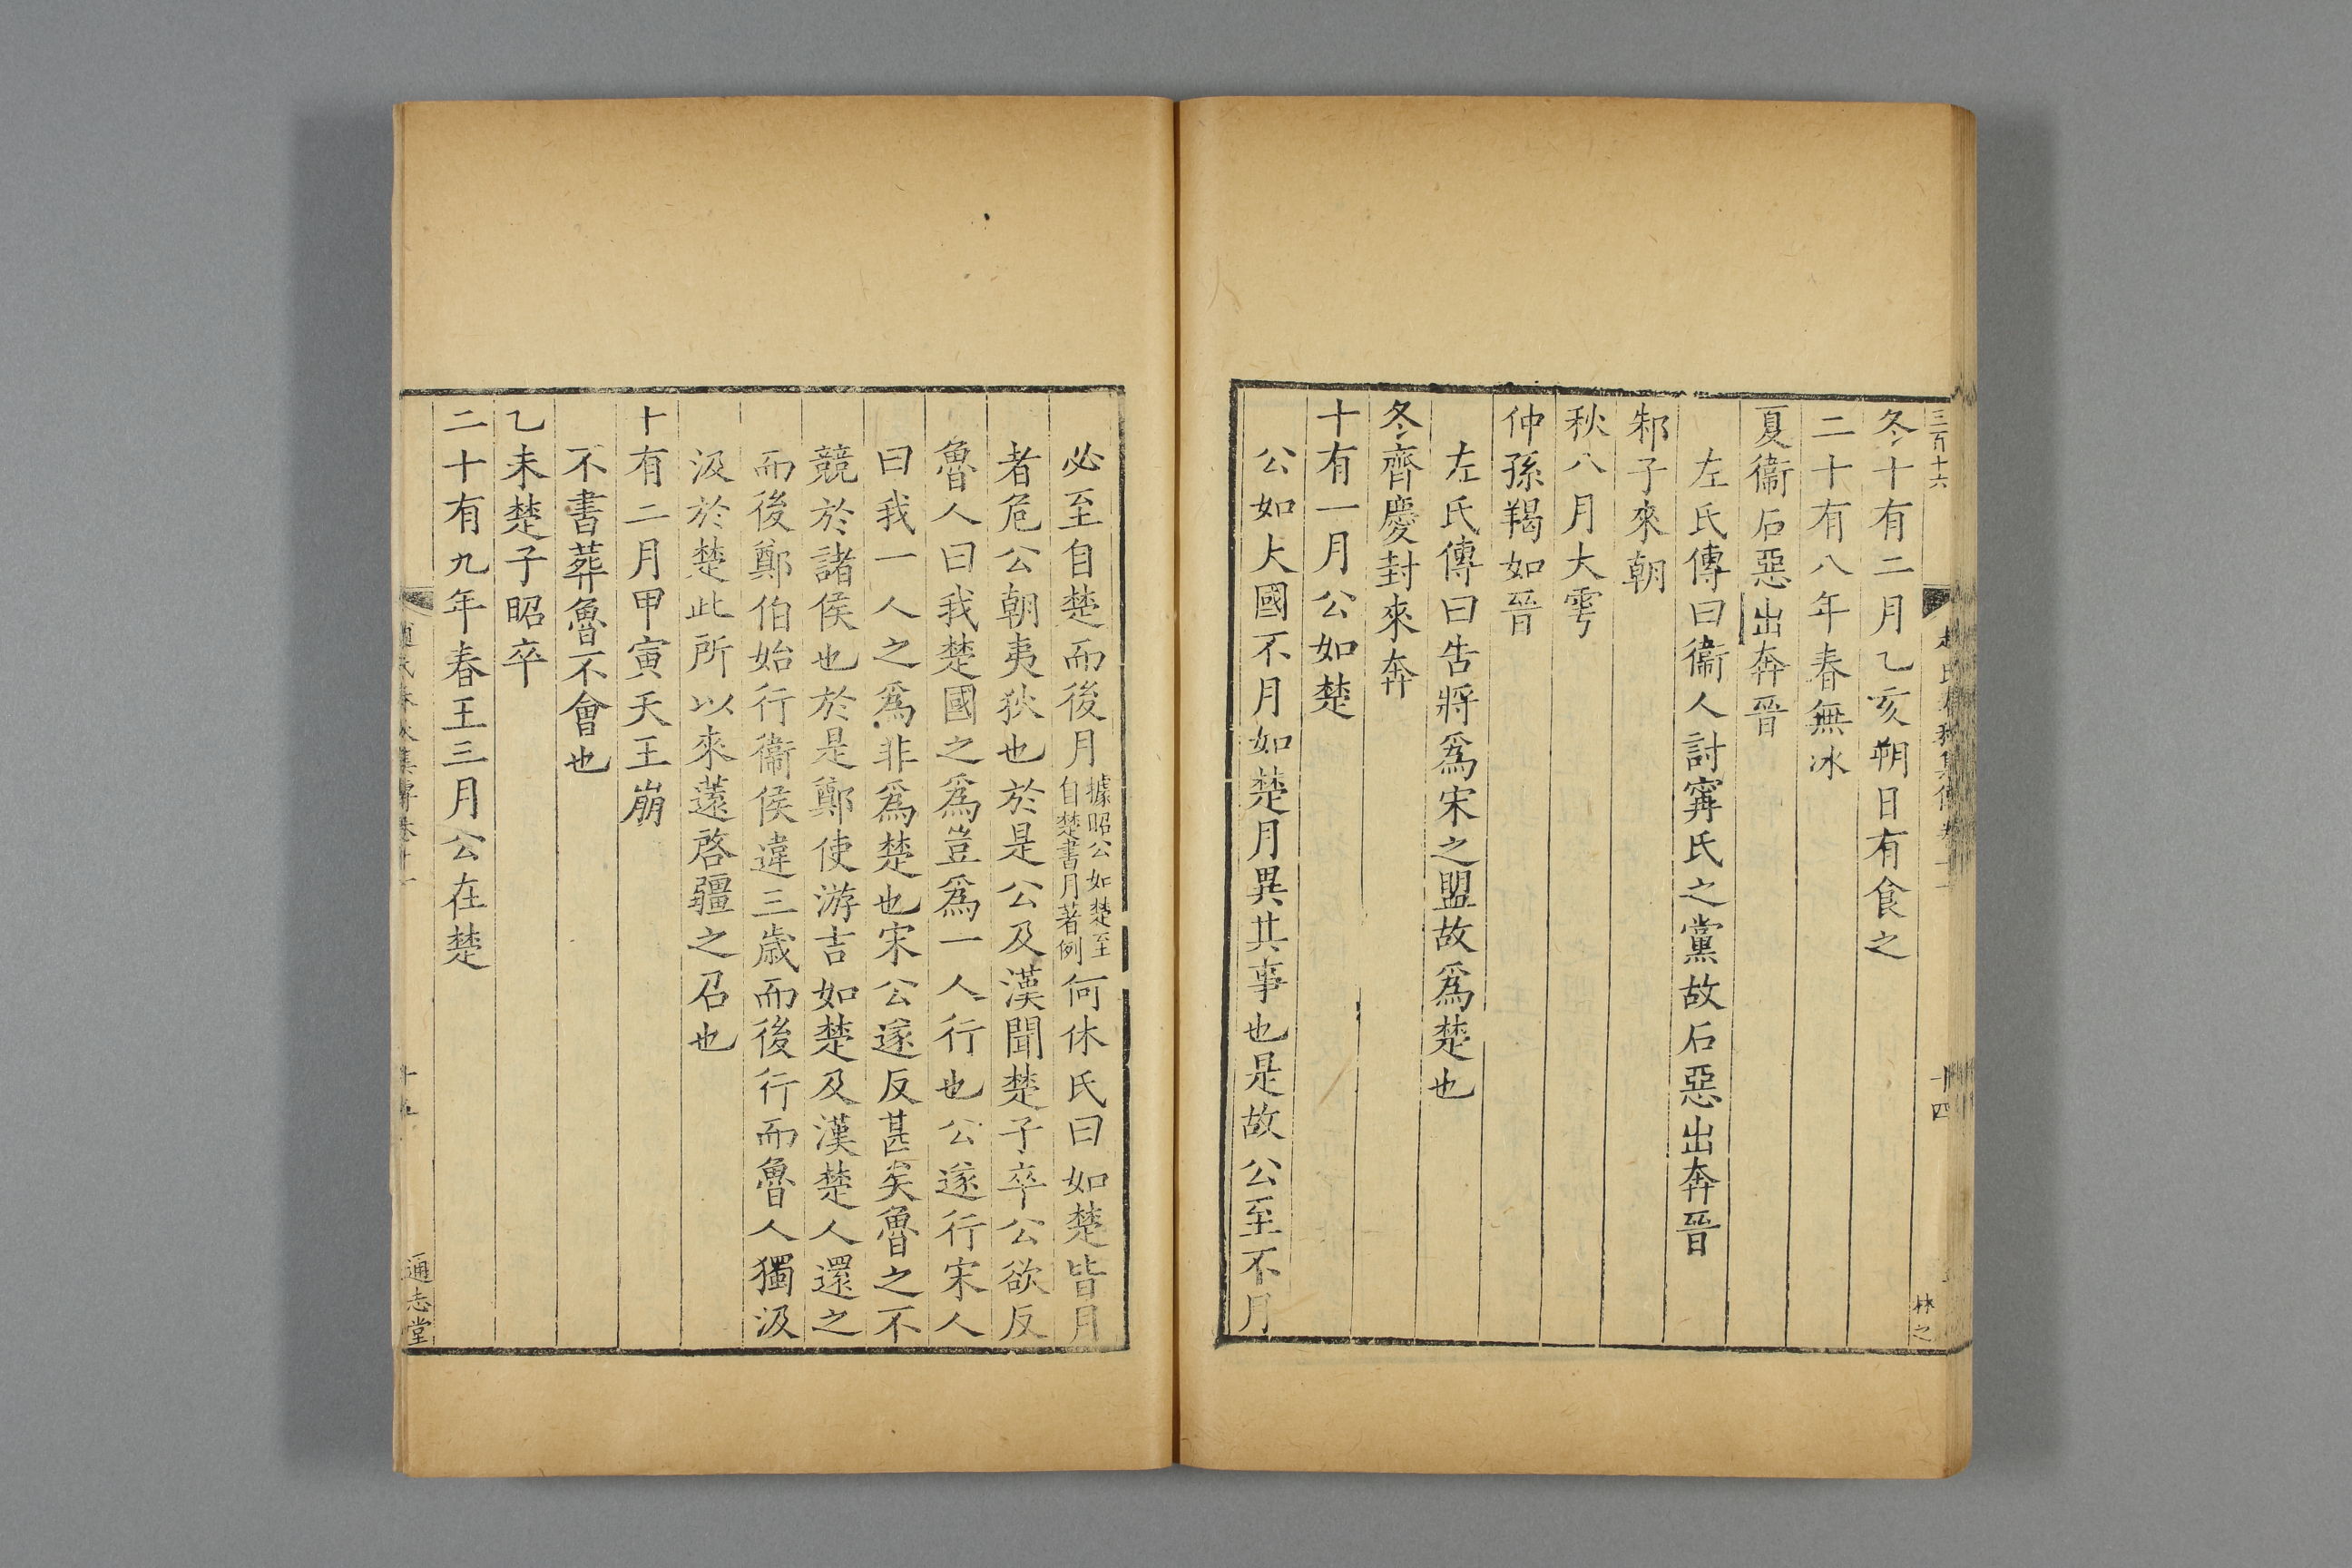 三百十六
十四
林之
冬十有二月乙亥朔日有食之
二十有八年春無冰
夏衞石惡出奔晉
左氏傳曰衞人討甯氏之黨故石惡出奔晉
邾子來朝
秋八月大雩
仲孫羯如晉
左氏傳曰告將爲宋之盟故爲楚也
冬齊慶封來奔
十有一月公如楚
公如大國不月如楚月異其事也是故公至不月
必至自楚而後月據昭公如楚至自楚書月著例何休氏曰如楚皆月
者危公朝夷狄也於是公及漢聞楚子卒公欲反
魯人曰我楚國之爲豈爲一人行也公遂行宋人
曰我一人之爲非爲楚也宋公遂反甚矣魯之不
競於諸侯也於是鄭使游吉如楚及漢楚人還之
而後鄭伯始行衞侯違三歲而後行而魯人獨汲
汲於楚此所以來薳啓疆之召也
十有二月甲寅天王崩
不書葬魯不會也
乙未楚子昭卒
二十有九年春王三月公在楚
通志堂